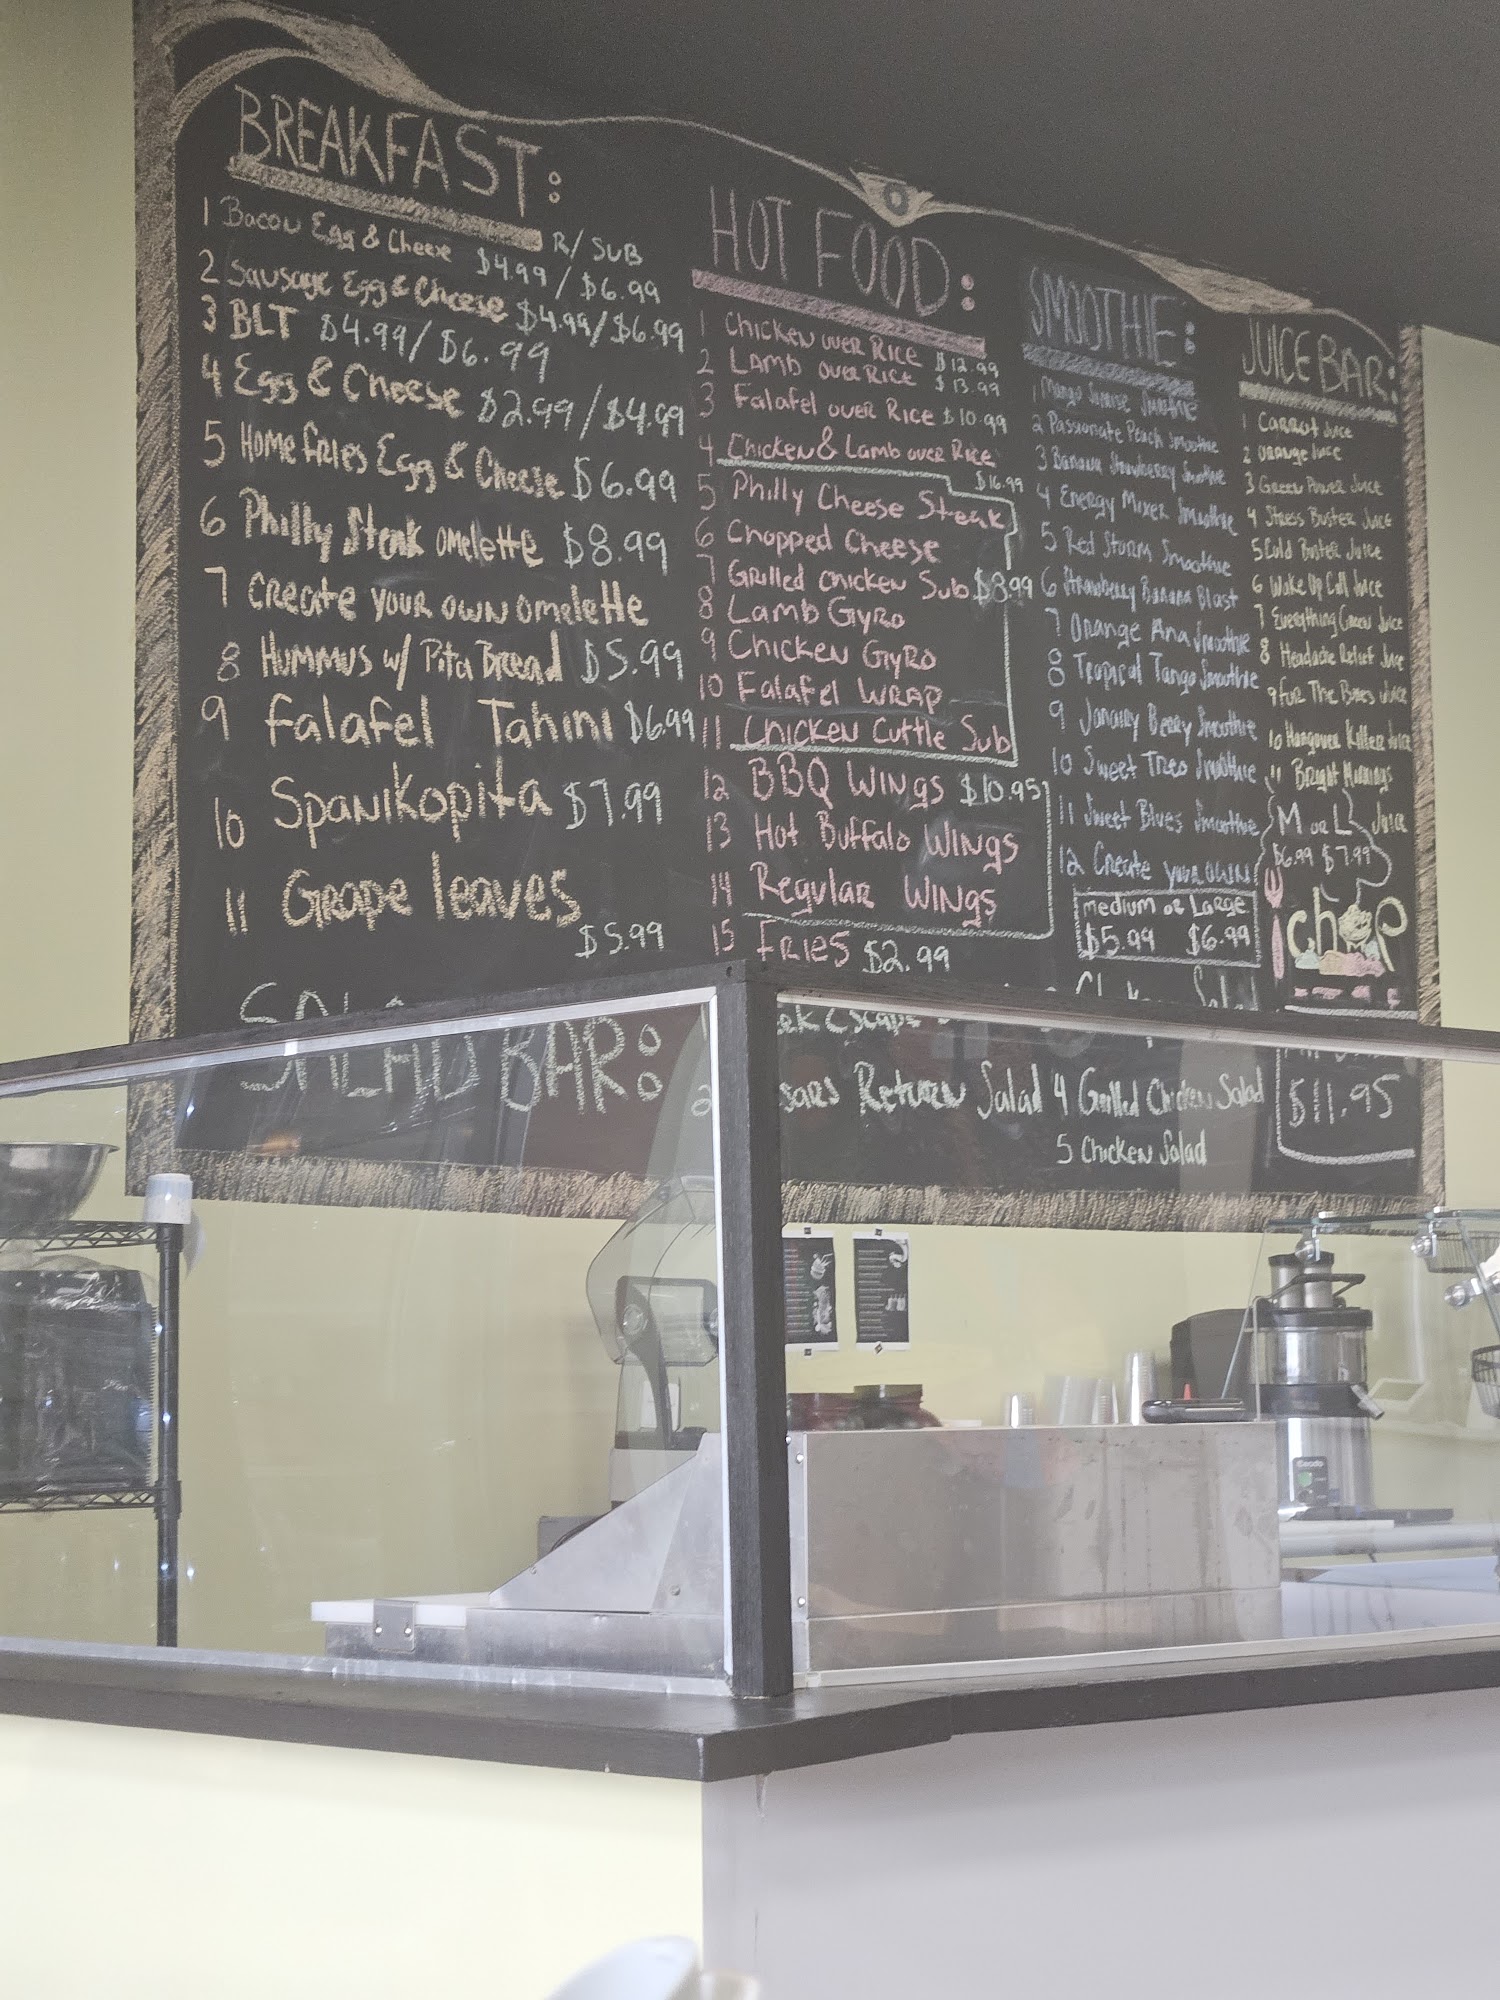 BREAKFAST:
R/ SUB
1 Bacon Egg & Cheese $4.99/$6.99
2 Sausage Egg & Cheese $4.99/$6.99
3 BLT $4.99/$6.99
4 Egg & Cheese $2.99/$4.99
5 Home fries Egg & Cheese $6.99
6 Philly Steak omelette $8.99
7 create your own omelette
8 Hummus w/ Pita Bread $5.99
9 falafel Tahini $6.99
10 Spanikopita $7.99
11 Grape leaves
$5.99
HOT FOOD:
1 Chicken over Rice $12.99
2 Lamb over Rice $13.99
3 Falafel over Rice $10.99
4 Chicken & Lamb over Rice
$16.99
5 Philly Cheese Steak
6 Chopped Cheese
7 Grilled chicken Sub $8.99
8 Lamb Gyro
9 Chicken Gyro
10 Falafel WRAP
11 Chicken Cuttle Sub
12 BBQ Wings $10.95
13 Hot Buffalo Wings
14 Regular Wings
15 FRIES $2.99
SMOOTHIE:
1 Mango Sunrise Smoothie
2 Passionate Peach Smoothie
3 Banana Strawberry Smoothie
4 Energy Mixer Smoothie
5 Red Storm Smoothie
6 Strawberry Banana Blast
7 Orange Ana Smoothie
8 Tropical Tango Smoothie
9 January Berry Smoothie
10 Sweet Treo Smoothie
11 Sweet Blues Smoothie
12 Create your own
medium or Large
$5.99 $6.99
JUICE BAR:
1 Carrot Juice
2 orange Juice
3 Green Power Juice
4 Stress Buster Juice
5 Cold Buster Juice
6 Wake Up Call Juice
7 Everything Green Juice
8 Headache Relief Juice
9 for The Bones Juice
10 Hangover Killer Juice
11 Bright Mornings
Juice
M or L
$6.99 $7.99
chop
SALAD BAR:
Escape
Return Salad 4 Grilled Chicken Salad
5 Chicken Salad
$11.95